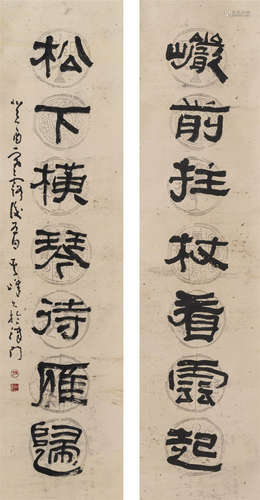 巗前拄杖看雲起
松下橫琴待雁歸
癸酉寒露後五日